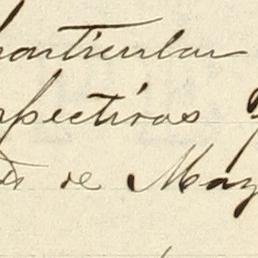 particular
rpectivas
de May